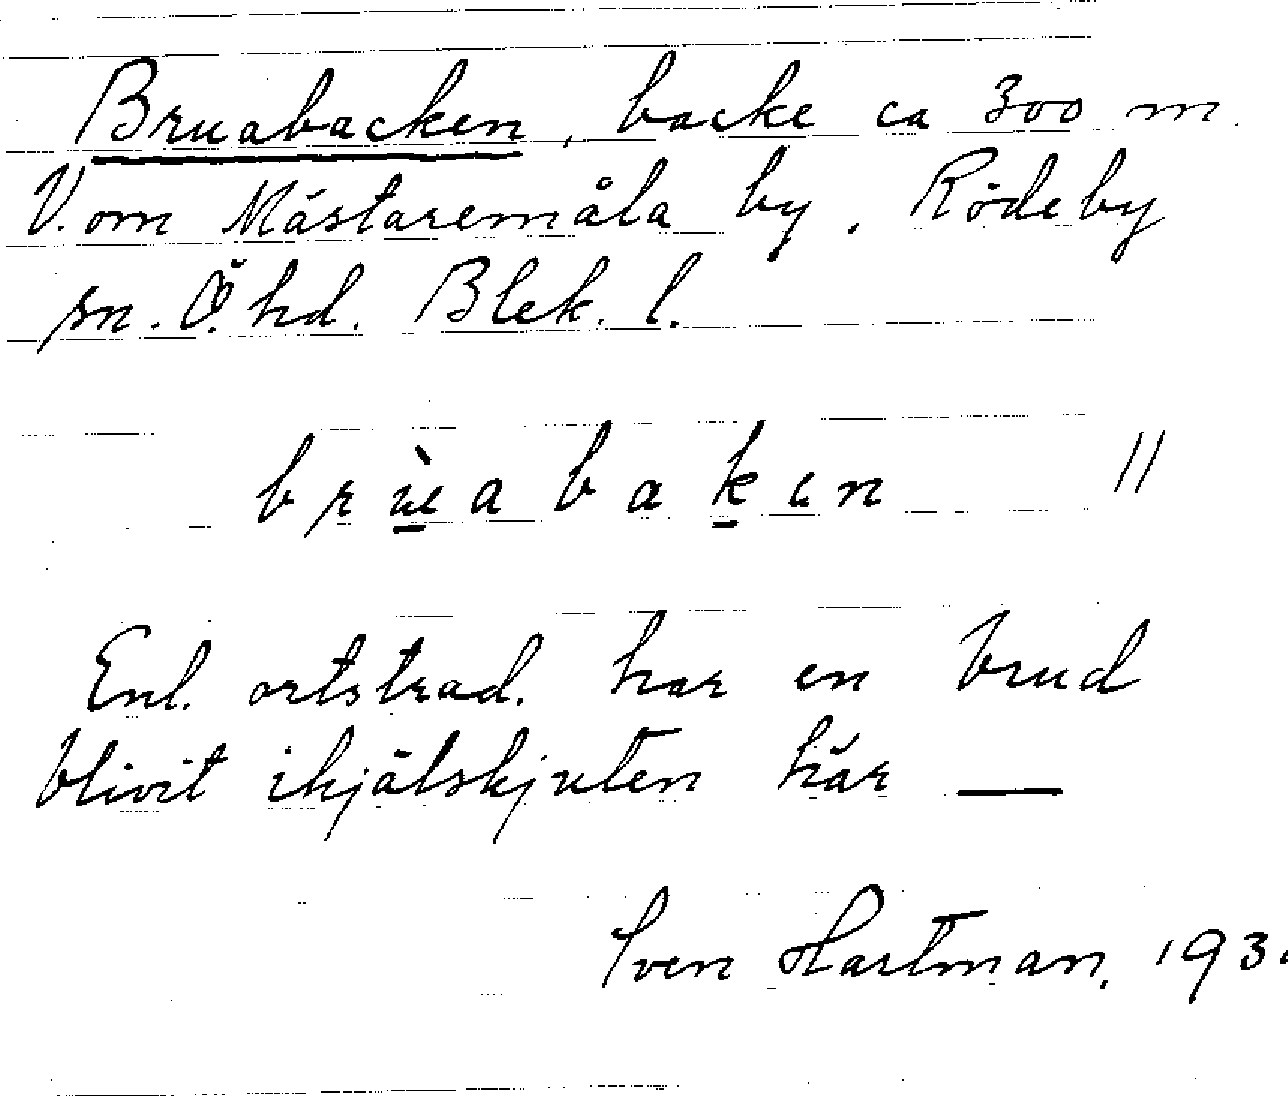 Bruabacken, backe ca 300 m
V. om Mästaremåla by, Rödeby
sn. Ö. hd. Blek. l.
brùabaken //
Enl. ortstrad. har en brud
blivit ihjälskjuten här —
Sven Hartman,